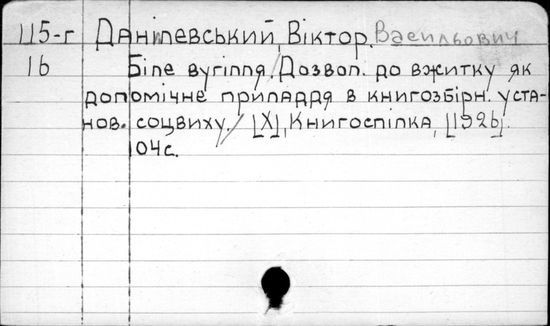 115-г Данілевський, Віктор. Васильович
16 Біле вугілля. Дозвол. до вжитку як
допомічне приладдя в книгозбірн. уста-
нов. соцвиху. / [Х], Книгоспілка, [1926].
104с.